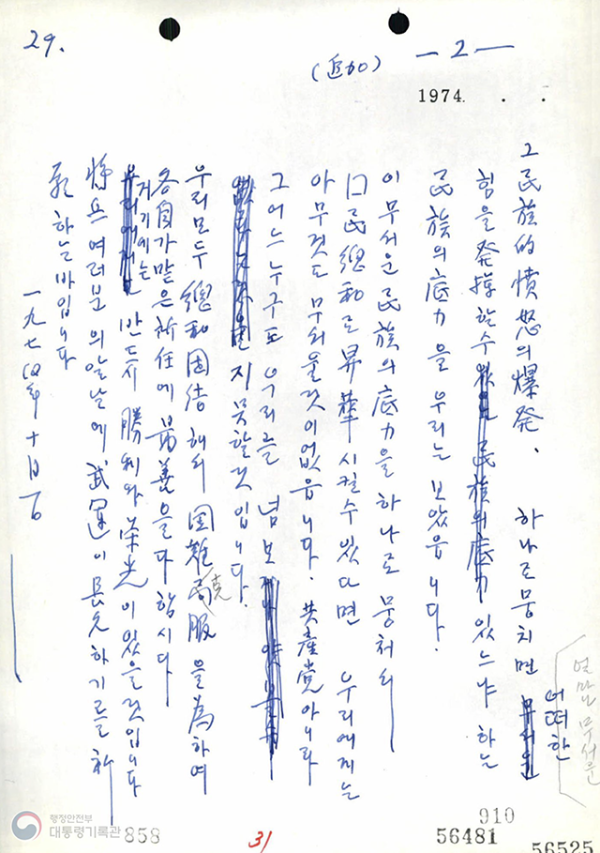 29.
(追加) — 2 —
1974. . .
그 民族的 憤怒의 爆発, 하나로 뭉치면 어떠한
얼마나 무서운
힘을 発揮할수 있느냐 하는
民族의 底力을 우리는 보았읍니다.
이 무서운 民族의 底力을 하나로 뭉처서
国民総和로 昇華시킬수 있다면 우리에게는
아무것도 무서울것이 없읍니다. 共産党 아니라
그 어느 누구도 우리를 넘보
지 못할것입니다.
우리 모두 總和団結해서 国難克服을 為하여
各自가 맡은 所任에 最善을 다합시다
거기에는 반드시 勝利와 栄光이 있을것입니다
将兵 여러분의 앞날에 武運이 長久하기를 祈
願하는바입니다
一九七四年 十月一日
행정안전부
대통령기록관
858
31
910
56481
56525